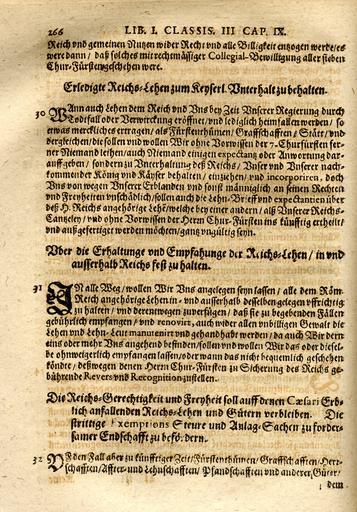 266 LIB. I. CLASSIS. III CAP. IX.
Reich vnd gemeinen Nutzen wider Recht vnd alle Billigkeit entzogen werde/es
were dann/ daß solches mit rechtmässiger Collegial-Bewilligung aller sieben
Chur-Fürsten geschehen were.
Erledigte Reichs-Lehen zum Keyserl. Vnterhalt zubehalten.
30 Wann auch Lehen dem Reich vnd Vns bey Zeit Vnserer Regierung durch
Todtfall oder Verwirckung eröffnet/vnd lediglich heimfallen werden/ so
etwas merckliches ertragen/ als Fürstenthümen/ Graffschafften/ Stätt/ vnd
dergleichen/die sollen vnd wollen Wir ohne Vorwissen der 7. Churfürsten fer-
ner Niemand leihen/ auch Niemand einigen expectantz oder Anwortung dar-
auff geben/ sondern zu Vnterhaltung deß Reichs/ Vnser vnd Vnserer nach-
kommender König vnd Käyser behalten/ einziehen/ vnd incorporiren, doch
Vns von wegen Vnserer Erblanden vnd sonst männiglich an seinen Rechten
vnd Freyheiten vnschädlich/sollen auch die Lehn-Brieff vnd expectantien über
deß H. Reichs angehörige Lehe/ welche bey einer andern/ alß Vnserer Reichs-
Cantzeley/ vnd ohne Vorwissen der Herrn Chur-Fürsten ins künfftig ertheilt/
vnd außgefertiget werden möchten/gantz vngültig seyn.
Vber die Erhaltunge vnd Empfahunge der Reichs-Lehen/ in vnd
ausserhalb Reichs fest zu halten.
31 In alle Weg/ wollen Wir Vns angelegen seyn lassen/ alle dem Röm.
Reich angehörige Lehen in- vnd ausserhalb desselben gelegen vffrichtig
zu halten/ vnd derentwegen zuverfügen/ daß sie zu begebenden Fällen
gebührlich empfangen/ vnd renovirt, auch wider allen vnbilligen Gewalt die
Lehen vnd Lehn-Leut manutenirt vnd gehandhabt werden/ da auch Wir deren
eins oder mehr Vns angehend befinden/sollen vnd wollen Wir das oder diesel-
be ohnweigerlich empfangen lassen/oder wann das nicht bequemlich geschehen
könte/ deßwegen denen Herrn Chur-Fürsten zu Sicherung des Reichs ge-
bührende Revers vnd Recognition zustellen.
Die Reichs-Gerechtigkeit vnd Freyheit soll auff denen Cæsari Erb-
lich anfallenden Reichs-Lehen und Gütern verbleiben. Die
strittige Exemptions Steure und Anlag-Sachen zu forder-
samer Endschafft zu befördern.
32 Vff den Fall aber zu künfftiger Zeit/Fürstenthümen/ Graffschafften/ Herr-
schafften/Affter- und Lehnschafften/ Pfandschafften und anderer Güter/
dem